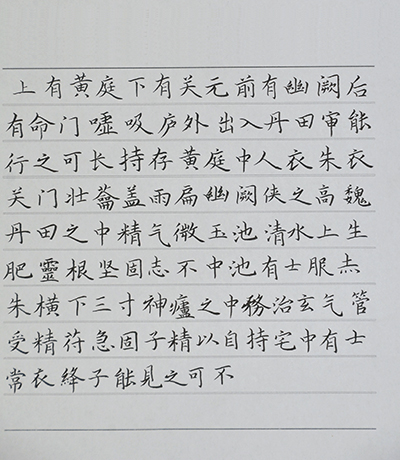 上有黄庭下有关元前有幽阙后
有命门嘘吸庐外出入丹田审能
行之可长持存黄庭中人衣朱衣
关门壮蘥盖雨扁幽阙侠之高魏
丹田之中精气微玉池清水上生
肥靈根坚固志不中池有士服赤
朱横下三寸神瘟之中務治玄气管
受精苻急固子精以自持宅中有士
常衣绛子能见之可不